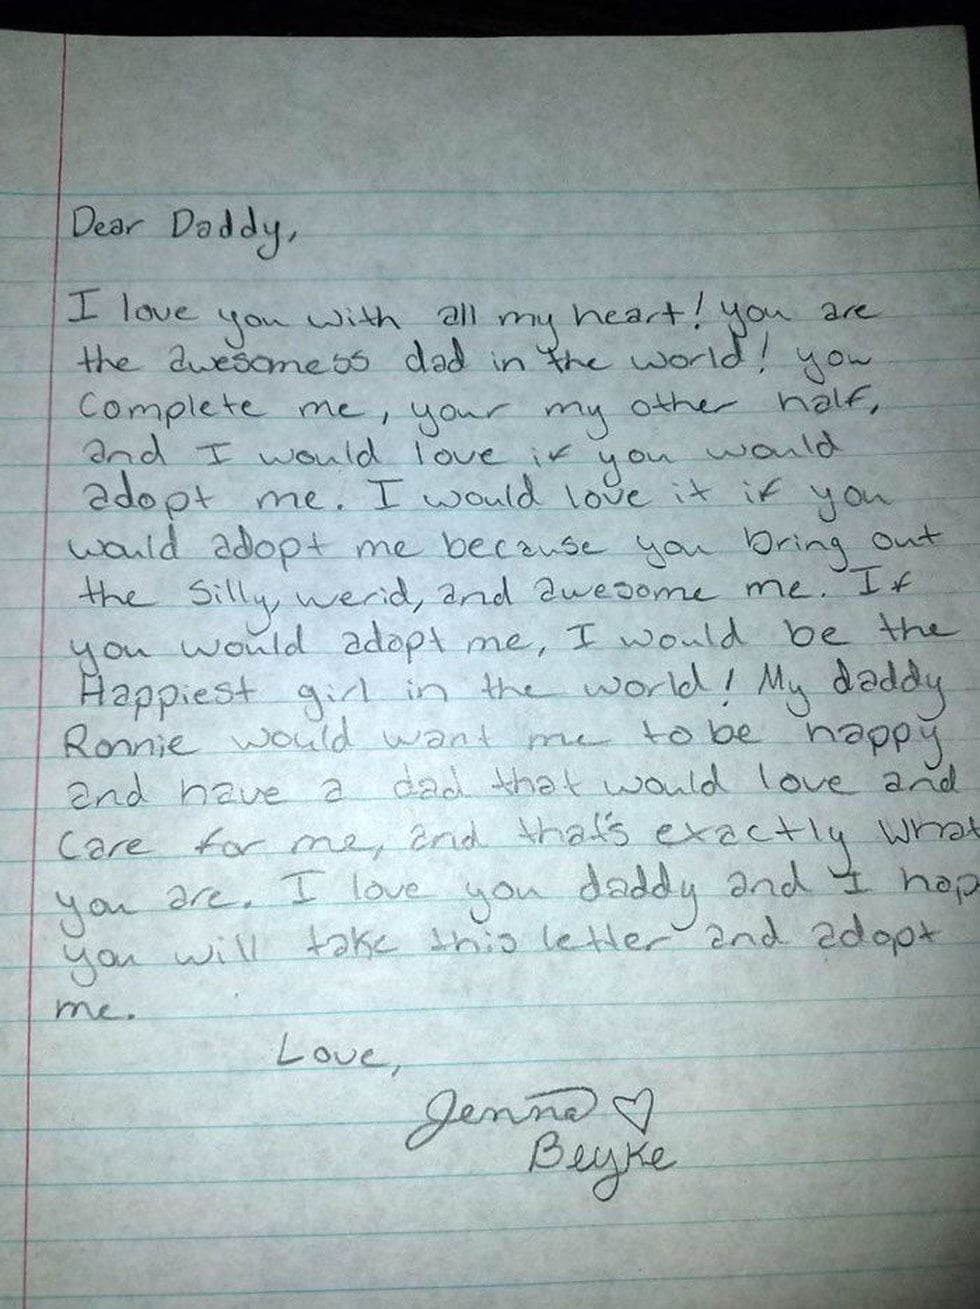 Dear Daddy,
I love you with all my heart! you are
the awesomess dad in the world! you
Complete me, your my other half,
and I would love if you would
adopt me. I would love it if you
would adopt me because you bring out
the silly, werid, and awesome me. If
you would adopt me, I would be the
Happiest girl in the world! My daddy
Ronnie would want me to be happy
and have a dad that would love and
care for me, and that's exactly what
you are. I love you daddy and I hop
you will take this letter and adopt
me.
Love,
Jenna ♡
Beyke